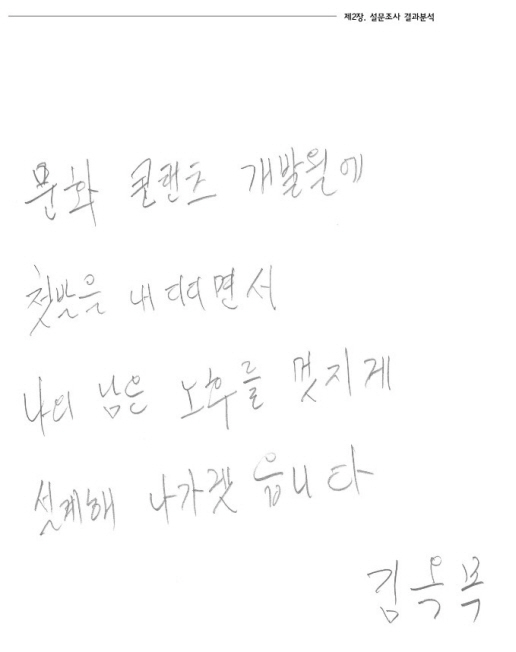 제2장. 설문조사 결과분석
문화 콘텐츠 개발원에
첫발을 내 디디면서
나의 남은 노후를 멋지게
설계해 나가겟 습니다
김옥